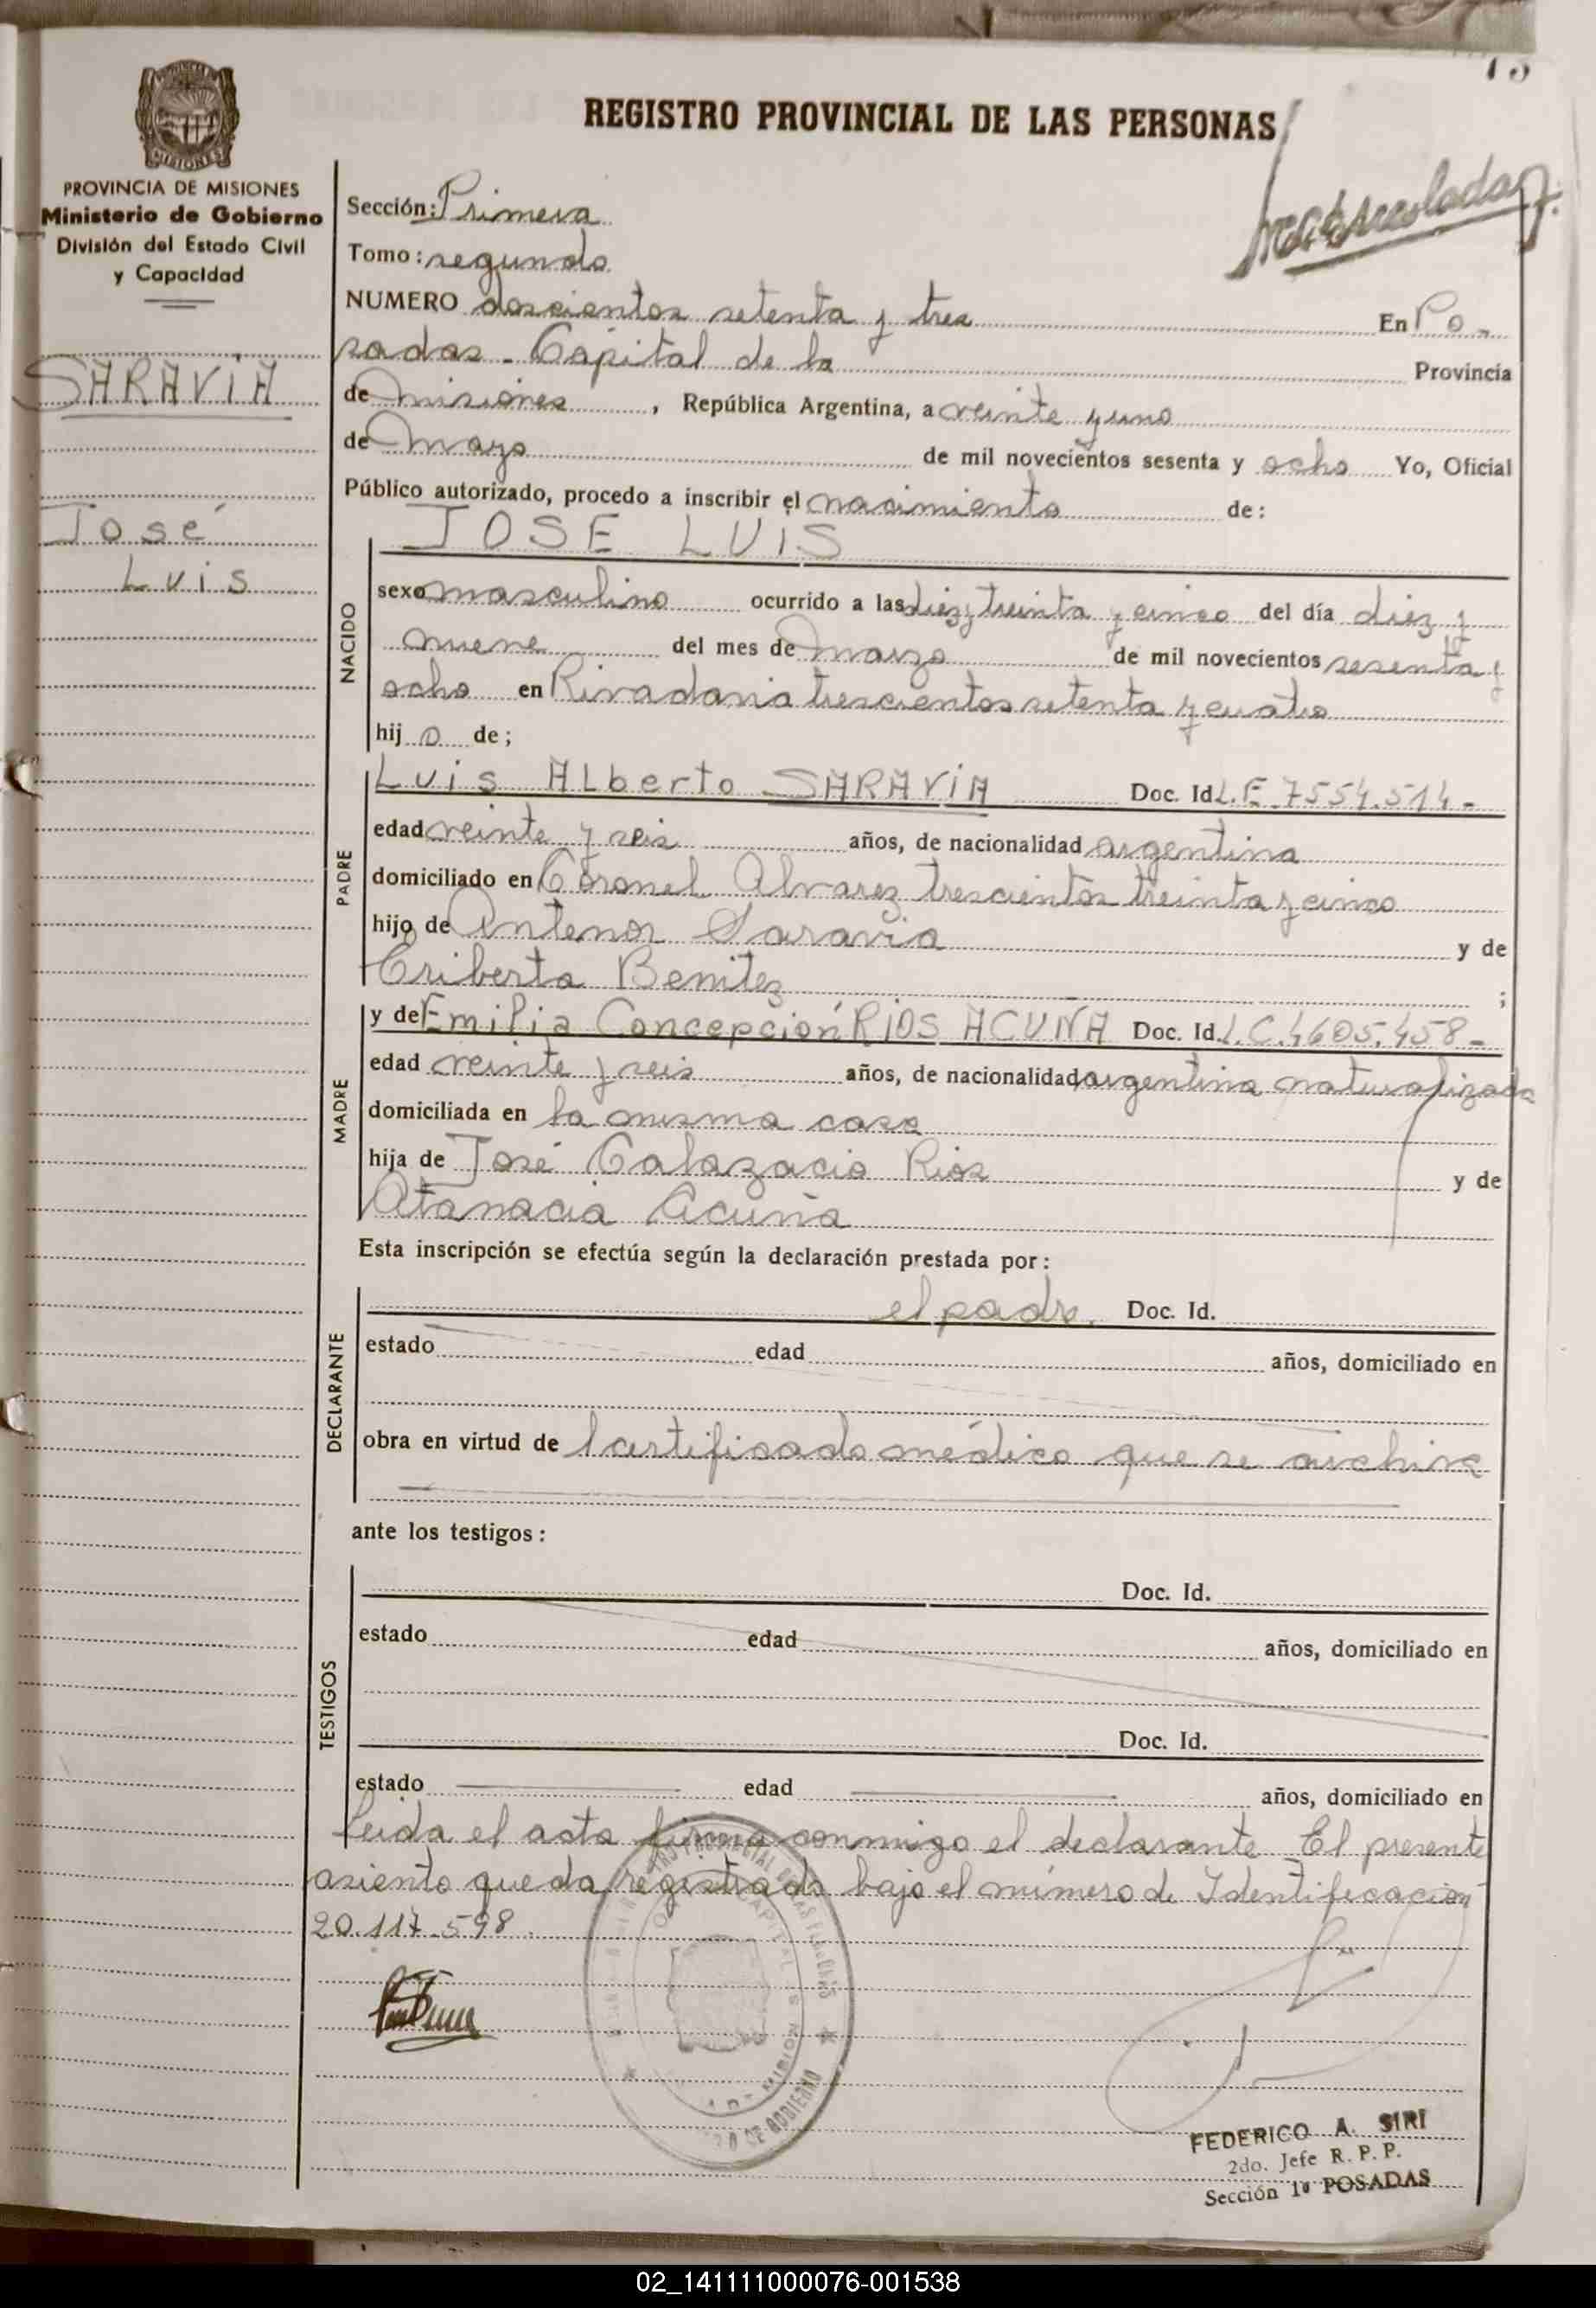 REGISTRO PROVINCIAL DE LAS PERSONAS
PROVINCIA DE MISIONES
Ministerio de Gobierno
División del Estado Civil
y Capacidad
SARAVIA
José
Luis
Sección: Primera
Tomo: segundo
NUMERO doscientos setenta y tres En Po-
sadas - Capital de la Provincia
de misiones, República Argentina, a veinte y uno
de mayo de mil novecientos sesenta y ocho Yo, Oficial
Público autorizado, procedo a inscribir el nacimiento de:
JOSE LUIS
NACIDO
sexo masculino ocurrido a las diez y treinta y cinco del día diez y
nueve del mes de marzo de mil novecientos sesenta y
ocho en Rivadavia trescientos setenta y cuatro
hijo de;
PADRE
Luis ALberto SARAVIA Doc. Id L.E. 7554.514-
edad veinte y seis años, de nacionalidad argentina
domiciliado en Coronel Alvarez trescientos treinta y cinco
hijo de Antenor Saravia y de
Eriberta Benitez ;
MADRE
y de Emilia Concepción RIOS ACUÑA Doc. Id. L.C. 4605.458-
edad veinte y seis años, de nacionalidad argentina naturalizada
domiciliada en la misma casa
hija de José Calazacio Rios y de
Atanacia Acuña
Esta inscripción se efectúa según la declaración prestada por:
DECLARANTE
el padre. Doc. Id.
estado edad años, domiciliado en
obra en virtud de l certificado médico que se archiva
ante los testigos:
TESTIGOS
Doc. Id.
estado edad años, domiciliado en
Doc. Id.
estado edad años, domiciliado en
Leida el acta firma conmigo el declarante El presente
asiento queda registrado bajo el número de Identificación
20.117.598
FEDERICO A. SIRI
2do. Jefe R. P. P.
Sección 1ª POSADAS
02_141111000076-001538